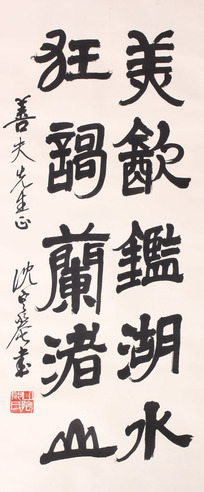 美㱃鑑湖水
狂謌蘭渚山
善夫先生正
沈定庵書